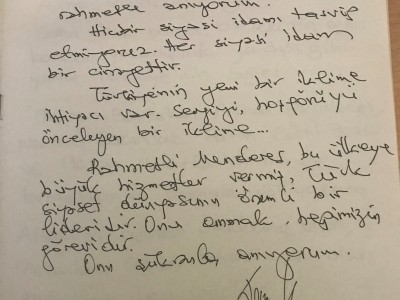 rahmetle anıyorum.
Hiçbir siyasi idamı tasvip
etmiyoruz. Her siyasi idam
bir cinayettir.
Türkiye'nin yeni bir iklime
ihtiyacı var. Sevgiyi, hoşgörüyü
önceleyen bir iklime...
Rahmetli Menderes, bu ülkeye
büyük hizmetler vermiş, Türk
siyaset dünyasının önemli bir
lideridir. Onu anmak, hepimizin
görevidir.
Onu şükranla anıyorum.